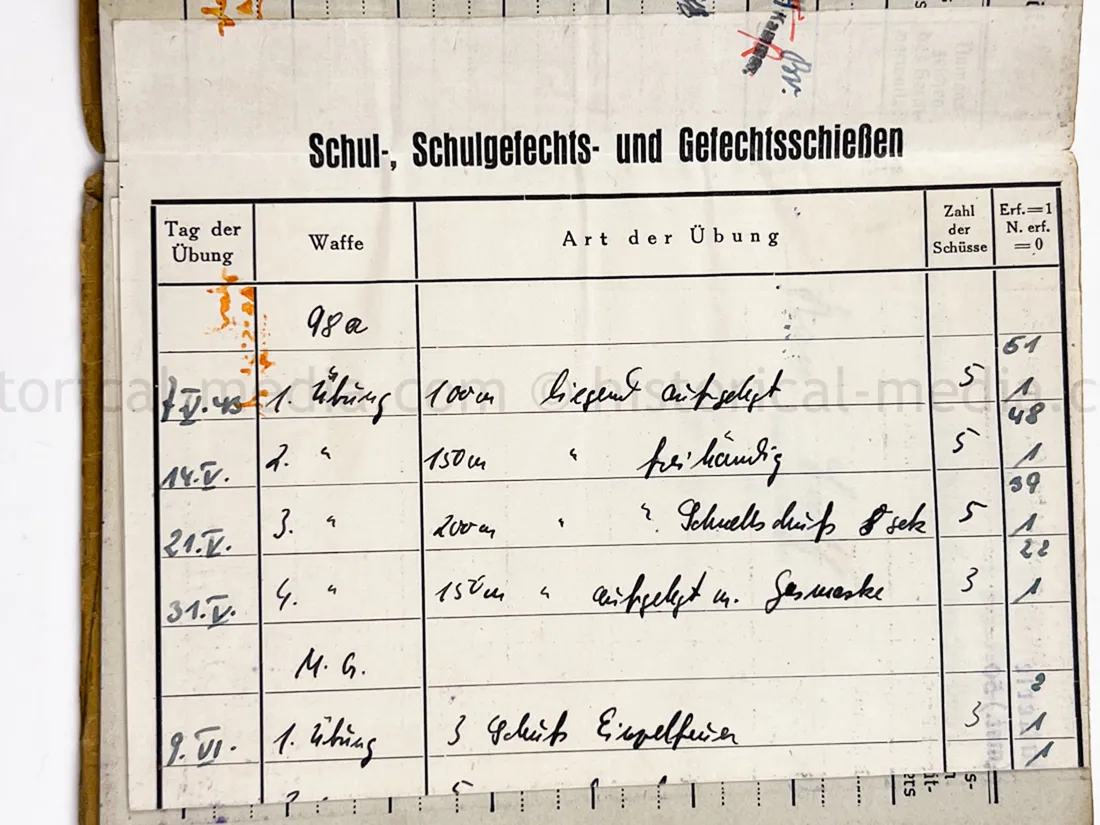 Kammer.
Schul-, Schulgefechts- und Gefechtsschießen
Tag der Übung Waffe Art der Übung Zahl der Schüsse Erf.=1 N. erf. =0
98a
51
7.V.43 1. Übung 100m liegend aufgelegt 5 1
48
14.V. 2. " 150m " freihändig 5 1
39
21.V. 3. " 200m " " Schnellschuß 8 sek 5 1
22
31.V. 4. " 150m " aufgelegt m. Gasmaske 3 1
M. G.
9.VI. 1. Übung 3 Schuß Einzelfeuer 3 1
1
historical-media.com © historical-media.c